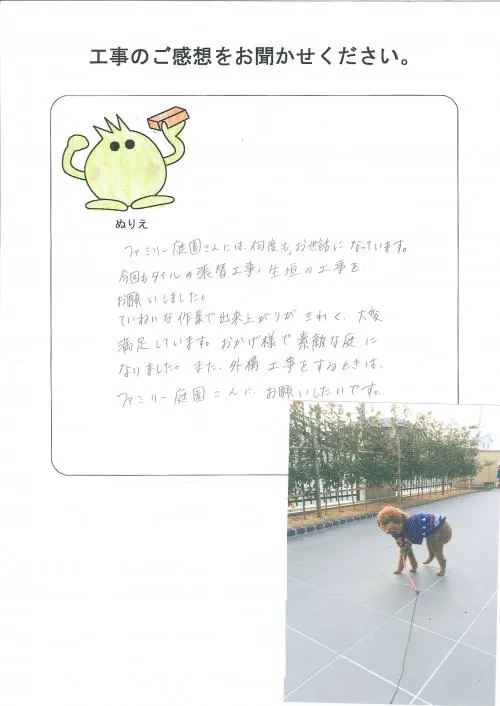 工事のご感想をお聞かせください。
ぬりえ
ファミリー庭園さんには何度も、お世話になっています。
今回もタイルの張替工事・生垣の工事を
お願いしました。
ていねいな作業で出来上がりがきれいで、大変
満足しています。おかげ様で素敵な庭に
なりました。また、外構工事をするときは、
ファミリー庭園さんに、お願いしたいです。